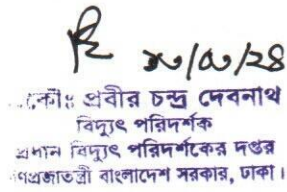 ৩১/০৩/২৪
কৌঃ প্রবীর চন্দ্র দেবনাথ
বিদ্যুৎ পরিদর্শক
প্রধান বিদ্যুৎ পরিদর্শকের দপ্তর
গণপ্রজাতন্ত্রী বাংলাদেশ সরকার, ঢাকা।